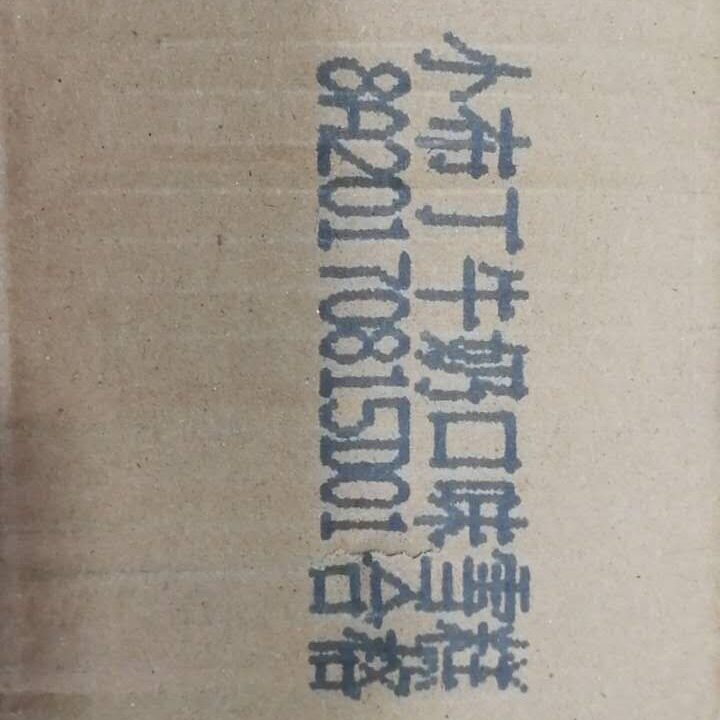 小布丁牛奶口味雪糕
8A20170815D01合格